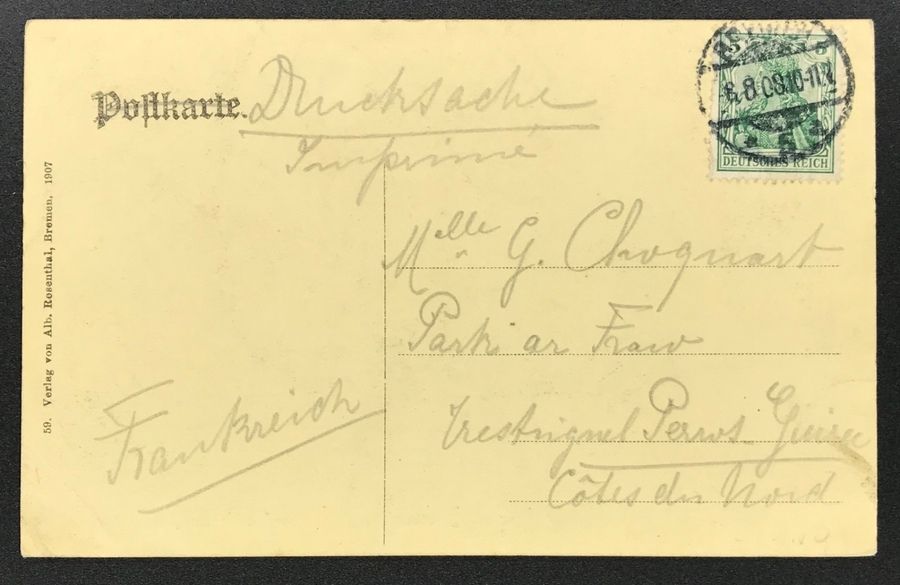 Postkarte.
Drucksache
Imprimé
5 5
8.08.10-11
DEUTSCHES REICH
Mlle G. Choquart
Park ar Fraw
Trestrignel Perros-Guirec
Côtes du Nord
Frankreich
59. Verlag von Alb. Rosenthal, Bremen. 1907